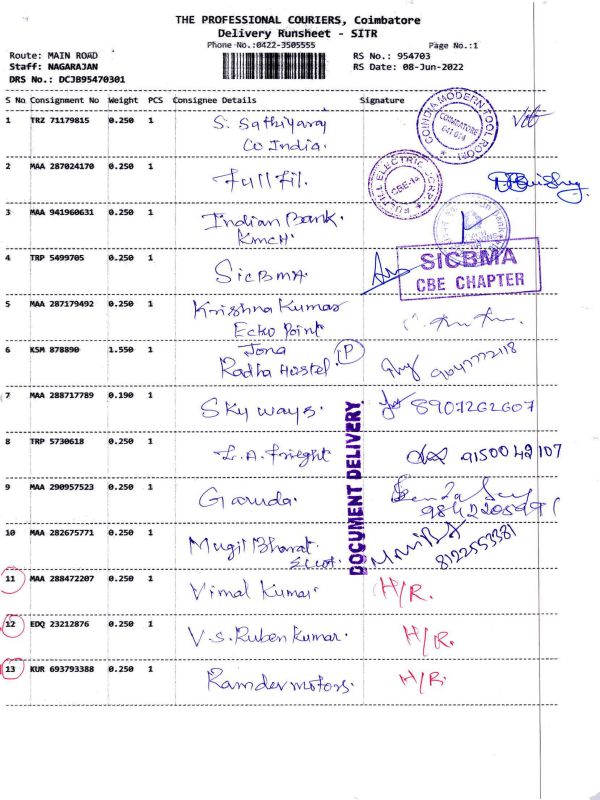 THE PROFESSIONAL COURIERS, Coimbatore
Delivery Runsheet - SITR
Phone No.:0422-3505555 Page No.:1
Route: MAIN ROAD RS No.: 954703
Staff: NAGARAJAN RS Date: 08-Jun-2022
DRS No.: DCJB95470301
S No Consignment No Weight PCS Consignee Details Signature
1 TRZ 71179815 0.250 1 S. Sathiyaraj
Co India.
COINDIA MODERN TOOL ROOM
COIMBATORE
2 MAA 287024170 0.250 1 Fullfil.
CBE-14
3 MAA 941960631 0.250 1 Indian Bank.
KMCH
4 TRP 5499705 0.250 1 SicBMA.
SICBMA
CBE CHAPTER
5 MAA 287179492 0.250 1 Krishna Kumar
Echo Point
6 KSM 878890 1.550 1 Jona
Radha Hostel. IP
9047772118
7 MAA 288717789 0.190 1 Sky ways. 8907262607
8 TRP 5730618 0.250 1 L.A. Frieght 9150042107
9 MAA 290957523 0.250 1 Garuda.
10 MAA 282675771 0.250 1 Mugil Bharat. 8122553381
DOCUMENT DELIVERY
11 MAA 288472207 0.250 1 Vimal Kumar. H/R.
12 EDQ 23212876 0.250 1 V.S. Ruben Kumar. H/R.
13 KUR 693793388 0.250 1 Ramdev motors. H/R.